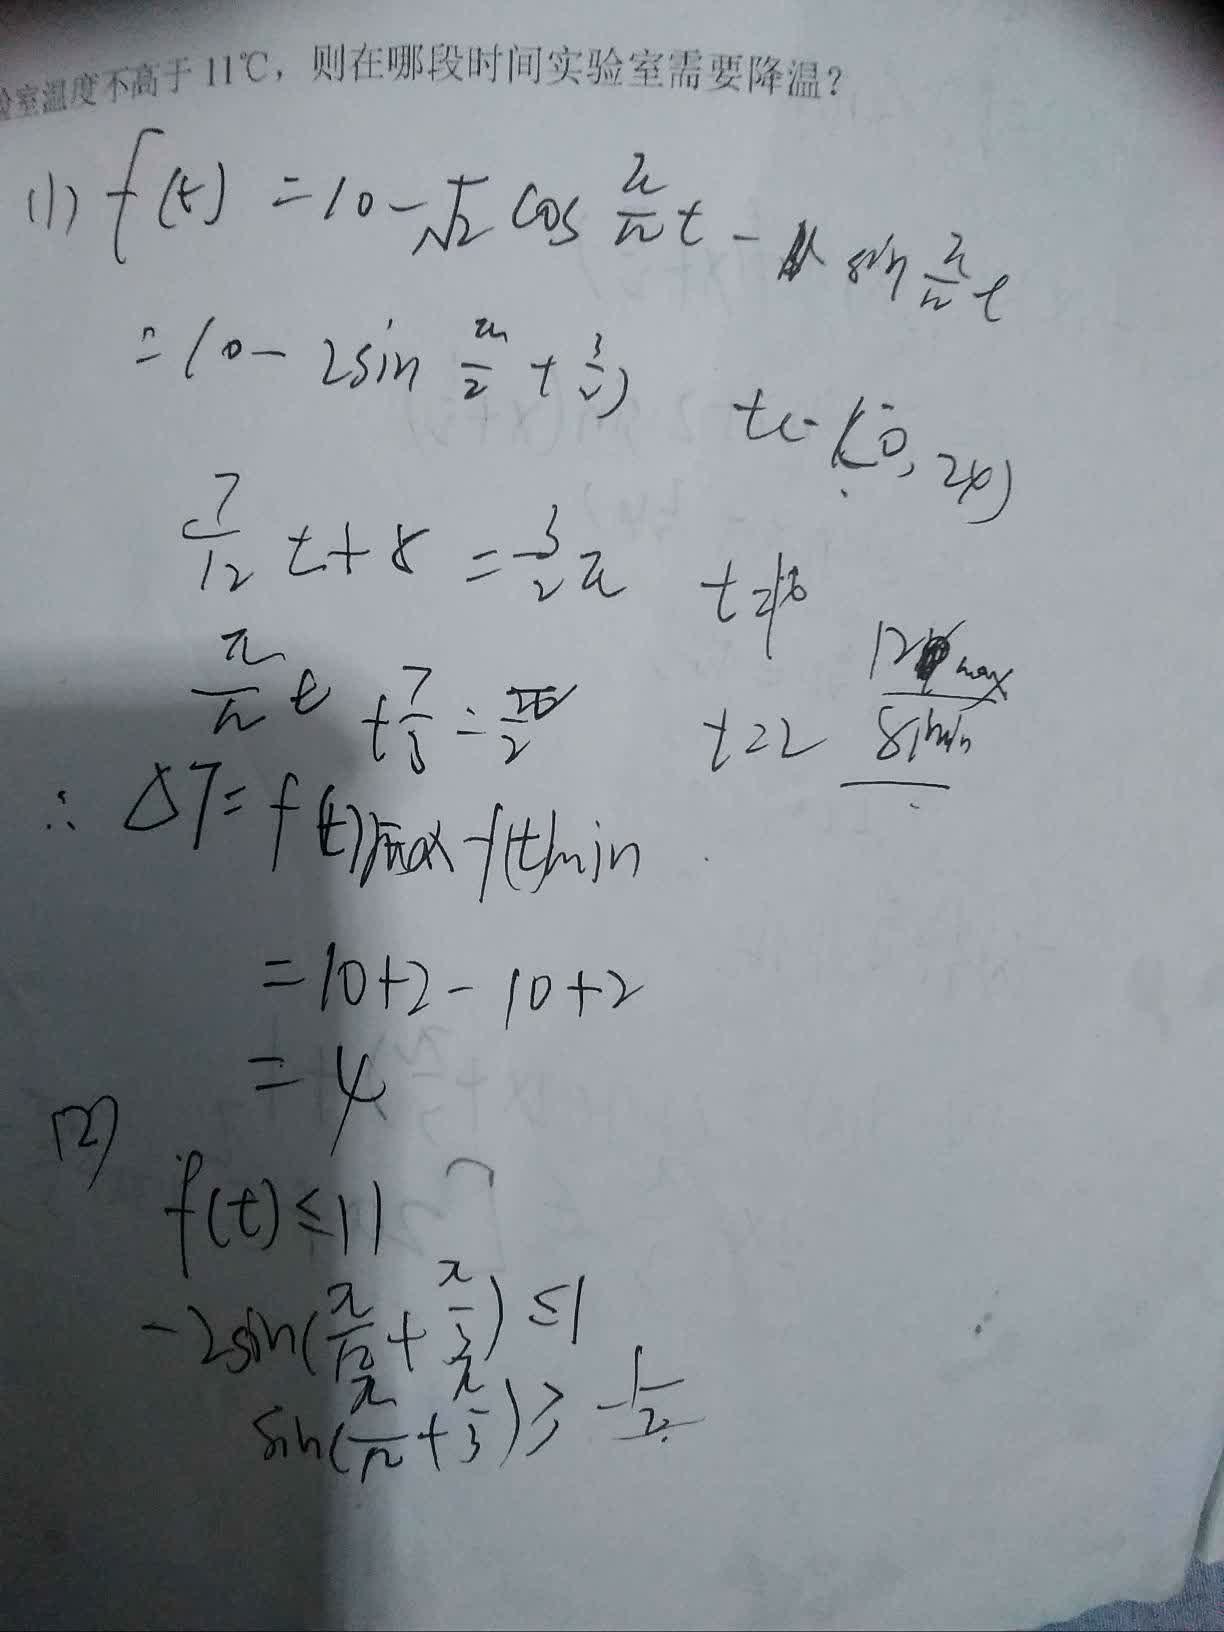 验室温度不高于11℃，则在哪段时间实验室需要降温？
(1) f(t) = 10 - √2 cos π/12 t - sin π/12 t
= 10 - 2sin π/2 + 3/2)
t∈ [0, 24)
7/12 t + 8 = 3/2 π
π/12 t + 7/3 = π/2
t=2
12 max
8 min
∴ ΔT = f(t)max - f(t)min
= 10+2-10+2
= 4
(2)
f(t) ≤ 11
-2sin(π/12 + π/3) ≤ 1
sin(π/12 + π/3) ≥ -1/2